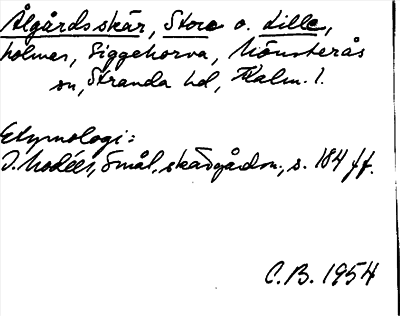 Ålgårdsskär, Stora o. Lilla,
holmar, Siggehorva, Mönsterås
sn, Stranda hd, Kalm. l.
Etymologi:
I. Modéer, Smål. skärgårdsn., s. 184 ff.
C.B. 1954